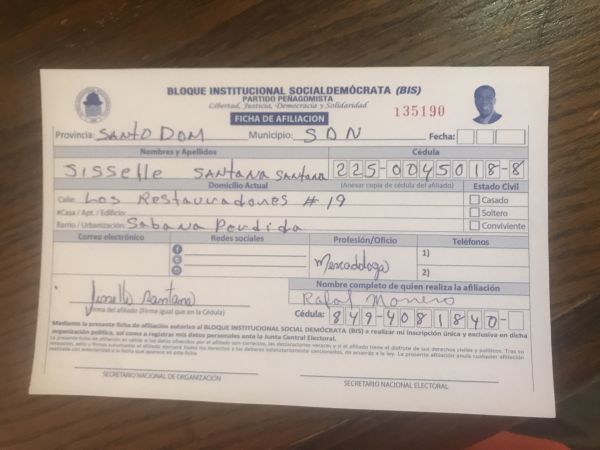 BLOQUE INSTITUCIONAL SOCIALDEMÓCRATA (BIS)
PARTIDO PEÑAGOMISTA
Libertad, Justicia, Democracia y Solidaridad
FICHA DE AFILIACION
135190
Provincia: SANTO DOM Municipio: SDN Fecha:
Nombres y Apellidos Cédula
SISSElle SANTANA SANTANA 225-0045018-8
Domicilio Actual (Anexar copia de cédula del afiliado) Estado Civil
Calle: Los Restauradores # 19 Casado
#Casa / Apt. / Edificio: Soltero
Barrio / Urbanización: Sabana Perdida Conviviente
Correo electrónico Redes sociales Profesión/Oficio Teléfonos
Mercadologa 1)
2)
Nombre completo de quien realiza la afiliación
Sisselle Santana Rafael Moreno
Firma del afiliado (Firme igual que en la Cédula) Cédula: 849-4081840-
Mediante la presente ficha de afiliación autorizo al BLOQUE INSTITUCIONAL SOCIAL DEMÓCRATA (BIS) a realizar mi inscripción única y exclusiva en dicha
organización política, así como a registrar mis datos personales ante la Junta Central Electoral.
SECRETARIO NACIONAL DE ORGANIZACIÓN SECRETARIO NACIONAL ELECTORAL